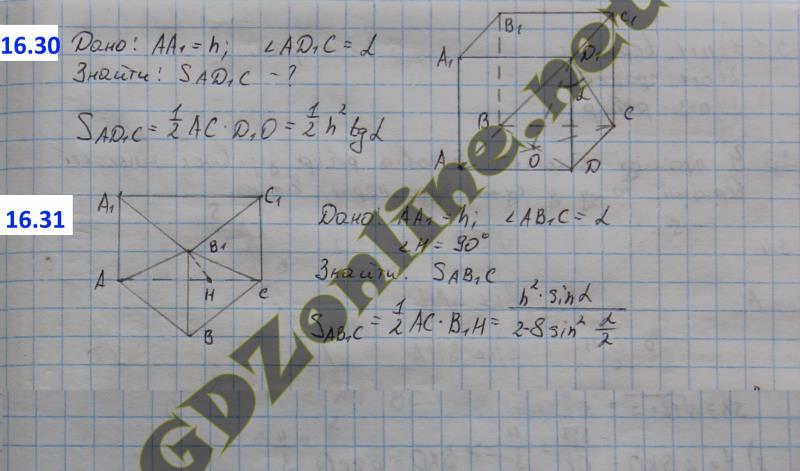 16.30
Дано: AA₁ = h; ∠AD₁C = α
Знайти: S AD₁C - ?
S AD₁C = 1/2 AC · D₁O = 1/2 h² tg α
A₁
B₁
C₁
D₁
α
B
C
A
O
D
16.31
A₁
C₁
B₁
A
H
C
B
Дано: AA₁ = h; ∠AB₁C = α
∠H = 90°
Знайти: S AB₁C
S AB₁C = 1/2 AC · B₁H = h² · sin α / 2-8 sin² α/2
GDZonline.net